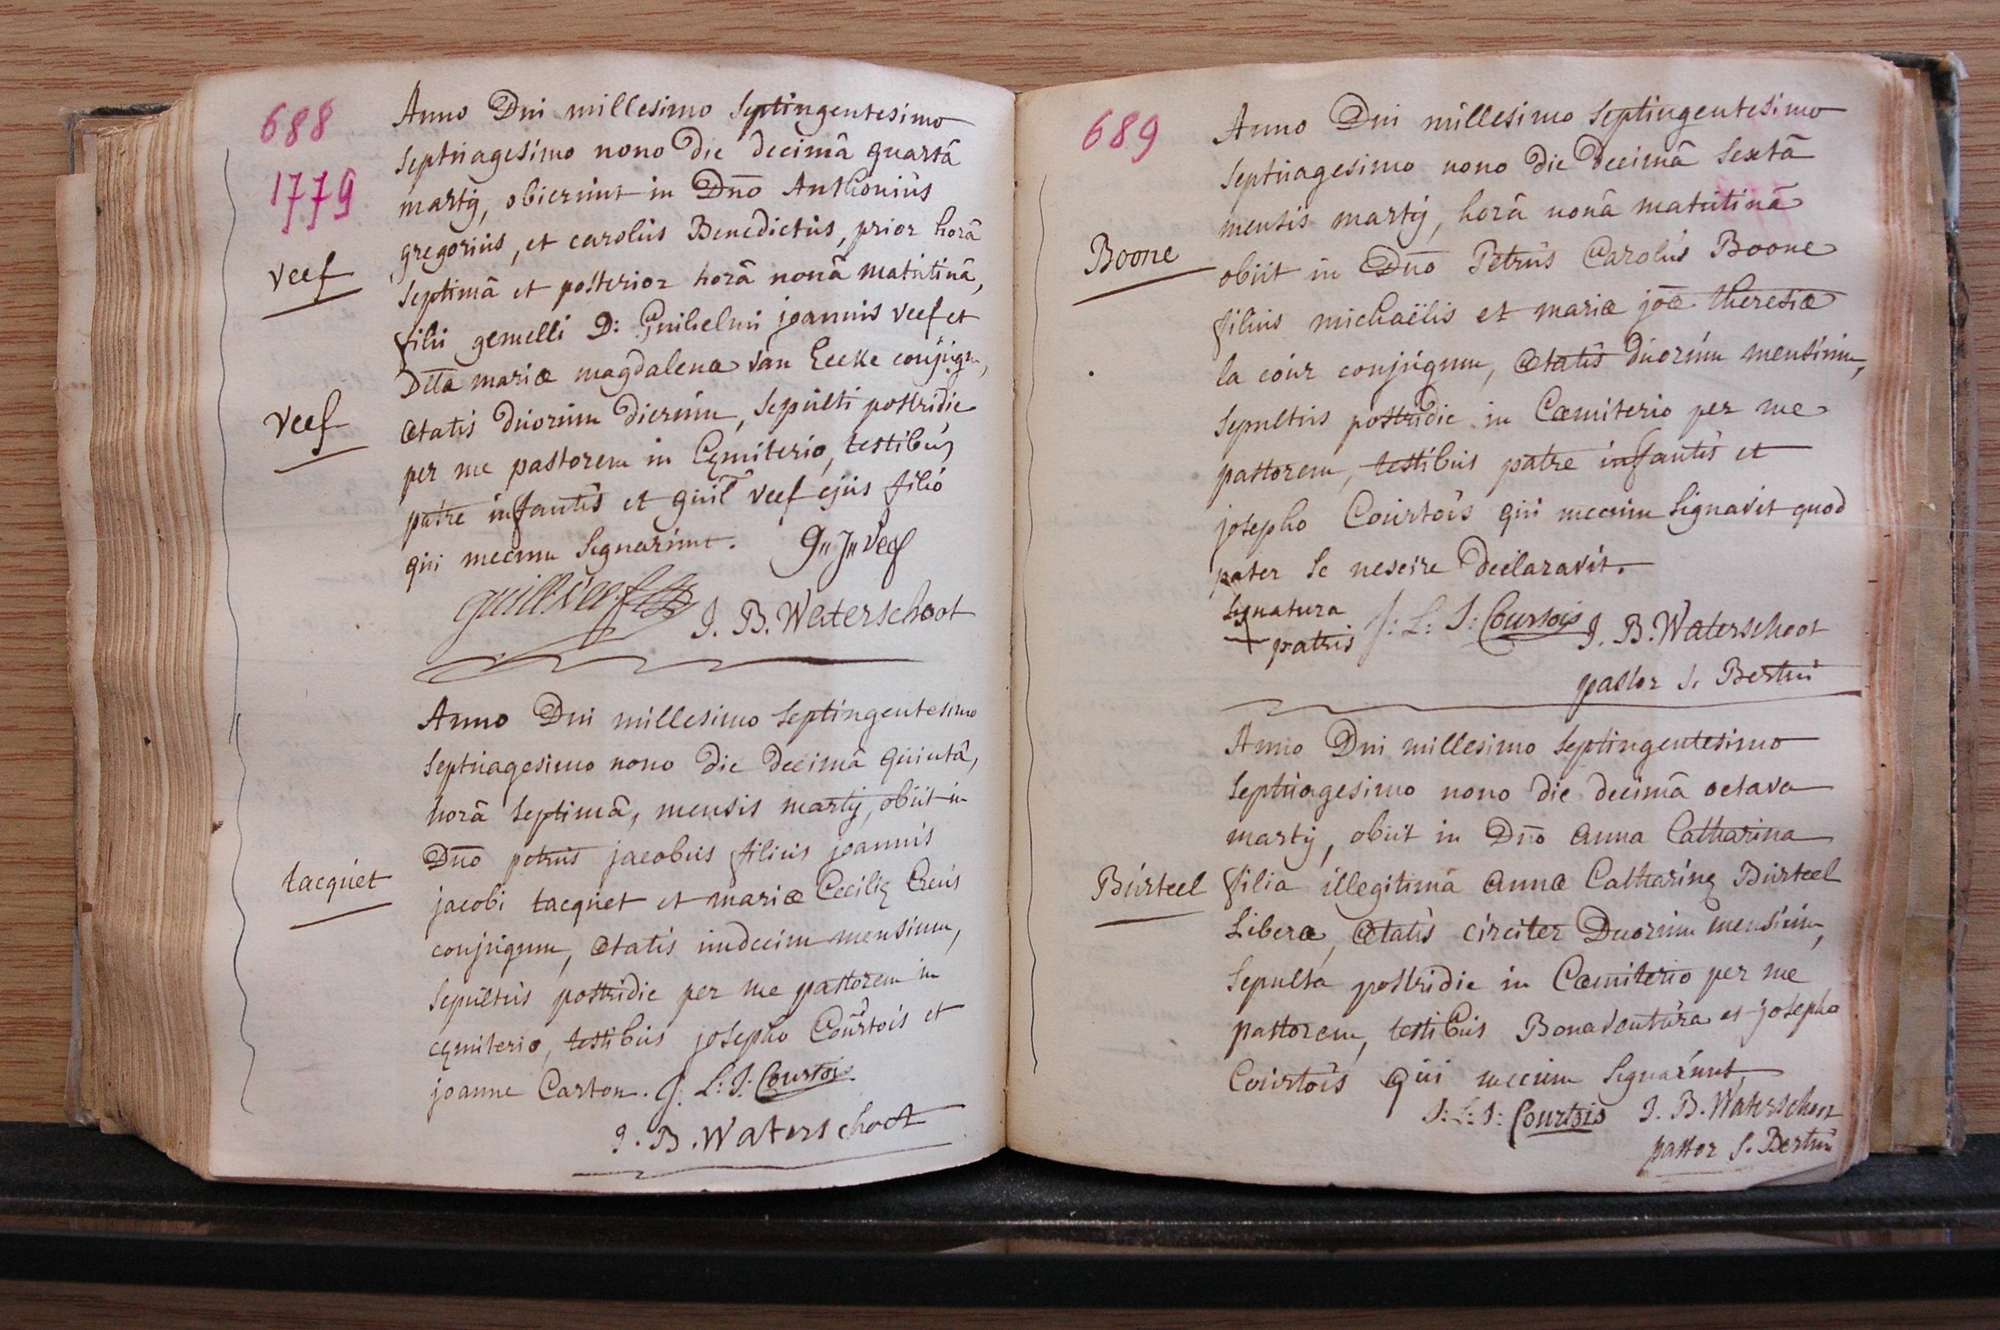 688
1779
Anno Dni millesimo Septingentesimo
Septuagesimo nono die decimâ quartâ
martij, obierunt in Dño Anthonius
gregorius, et carolus Benedictus, prior horâ
Septimâ et posterior horâ nonâ matutinâ,
filii gemelli D: Guilielmi joannis veef et
mariæ magdalenæ van Eecke conjugum,
ætatis duorum dierum, Sepulti postridie
per me pastorem in Cęmiterio, testibus
patre infantis et guil veef ejus filio
qui mecum Signarunt. G: J: Veef
veef
veef
guill veef
J. B. Waterschoot
Anno Dni millesimo Septingentesimo
Septuagesimo nono die decimâ quintâ,
horâ Septimâ, mensis martij, obiit in
Dño petrus jacobus filius joannis
jacobi tacquet et mariæ Cecilię Creus
conjugum, ætatis undecim mensium,
Sepultus postridie per me pastorem in
cęmiterio, testibus josepho Courtois et
joanne Carton. J: L: J: Courtois
tacquet
J. B. Waterschoot
689
Anno Dni millesimo Septingentesimo
Septuagesimo nono die decimâ Sextâ
mensis martij, horâ nonâ matutinâ
obiit in Dño Petrus Carolus Boone
filius michaëlis et mariæ joæ theresiæ
la cour conjugum, ætatis duorum mensium,
Sepultus postridie in Cæmiterio per me
pastorem, testibus patre infantis et
josepho Courtois qui mecum Signavit quod
pater Se nescire declaravit.
Boone
Signatura
+ patris
J: L: J: Courtois J. B. Waterschoot
pastor S. Bertini
Anno Dni millesimo Septingentesimo
Septuagesimo nono die decimâ octava
martij, obiit in Dño anna Catharina
filia illegitima annæ Catharinę Burteel
Liberæ, ætatis circiter Duorum mensium,
Sepulta postridie in Cæmiterio per me
pastorem, testibus Bonaventura et josepho
Courtois qui mecum Signarunt
Burteel
J: L: J: Courtois J. B. Waterschoot
pastor S. Bertini